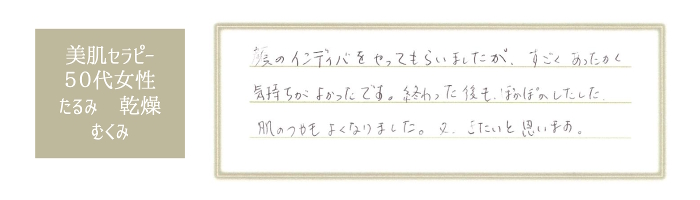 美肌セラピー
50代女性
たるみ　乾燥
むくみ
顔のインディバをやってもらいましたが、すごくあったかく
気持ちがよかったです。終わった後も、ぽかぽかしたした、
肌のつやもよくなりました。又、きたいと思います。